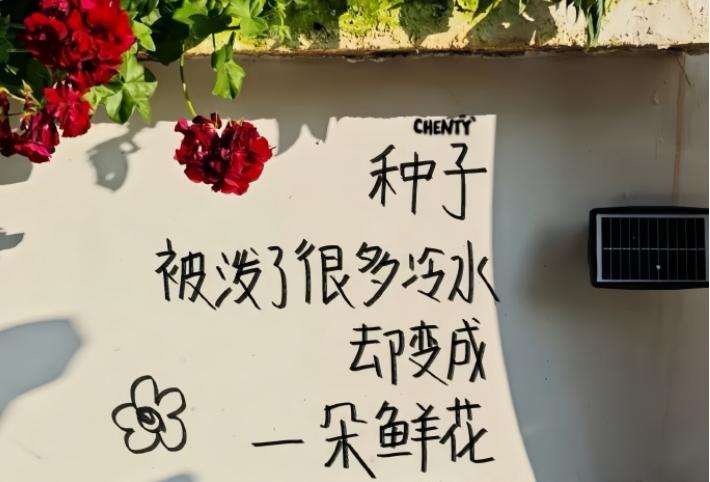 CHENTY
种子
被泼了很多冷水
却变成
一朵鲜花